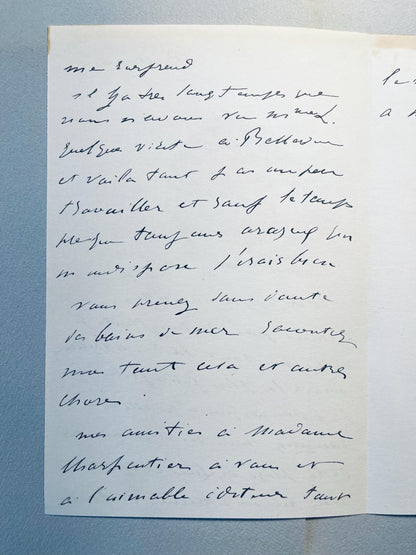 me surprend
il y a très longtemps que
nous n'avons vu
quelque visite à Bellevue
et voila tout j'ai un peu
travailler et sauf le temps
presque toujours orageux qui
m'indispose j'irais bien
vous prenez sans doute
des bains de mer racontez
moi tout cela et autres
choses
mes amitiés à Madame
Charpentier à vous et
à l'aimable éditeur tout
la
a